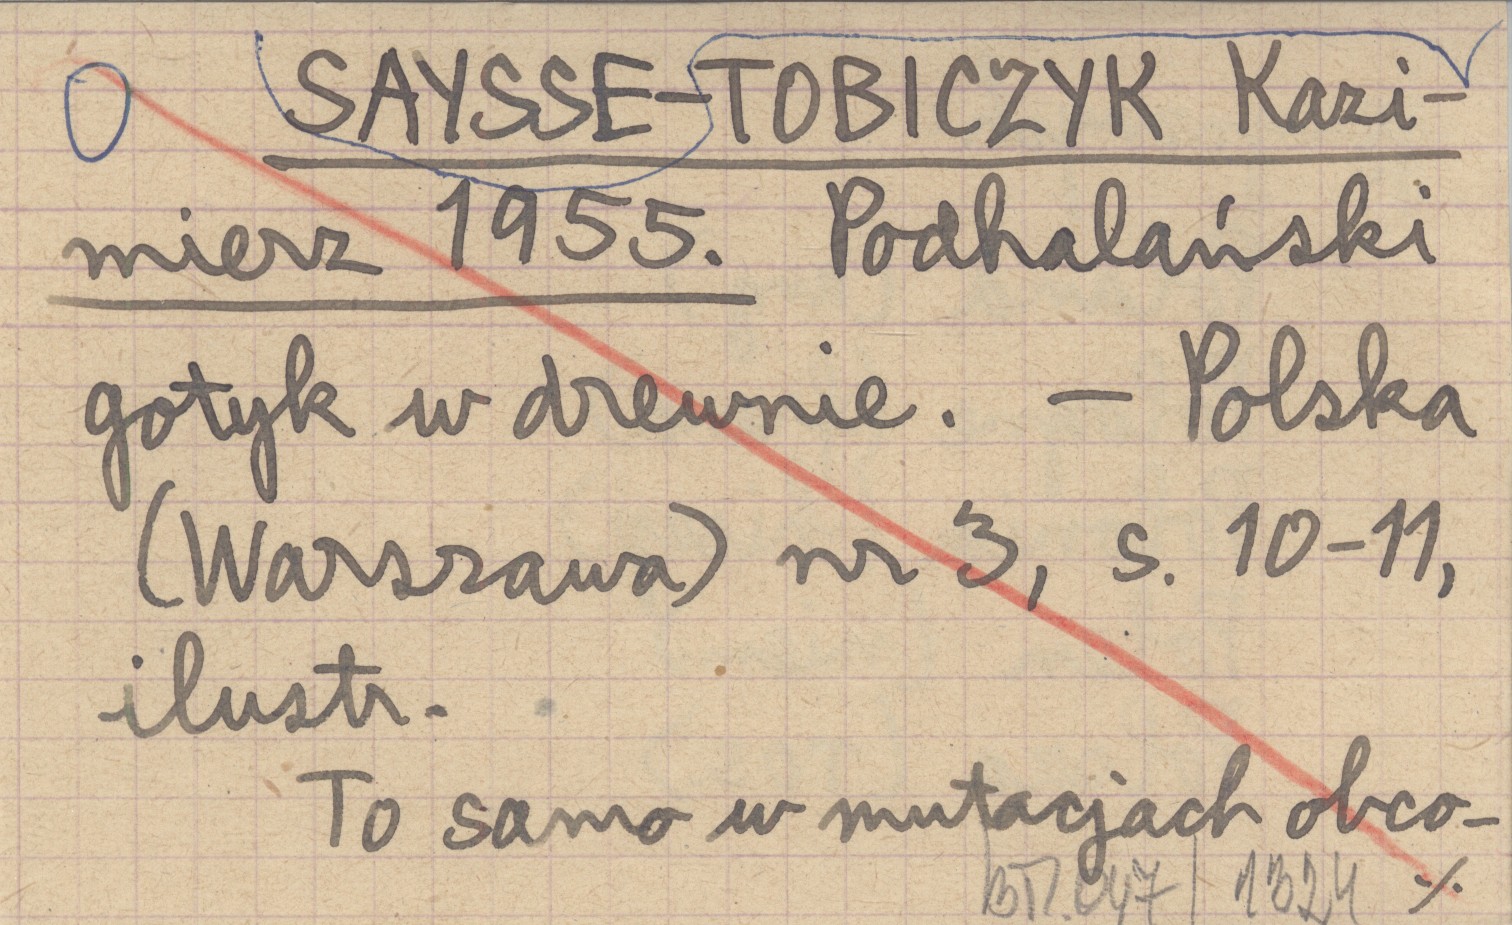 SAYSSE-TOBICZYK Kazi-
mierz 1955. Podhalański
gotyk w drewnie. – Polska
(Warszawa) nr 3, s. 10-11,
ilustr.
To samo w mutacjach obco-
1324 ./.